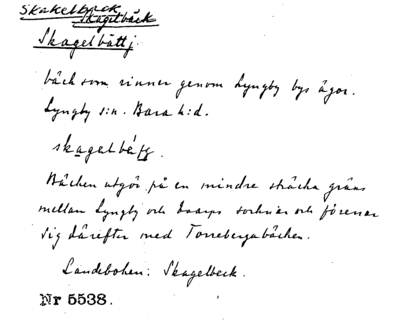 Skakelbäck
Skagelbäck
Skagelbättj
bäck som rinner genom Lyngby bys ägor.
Lyngby s:n. Bara h:d.
Bäcken utgör på en mindre sträcka gräns
mellan Lyngby och Esarps socknar och förenar
sig därefter med Torrebergabäcken.
Landebohen: Skagelbeck.
Nr 5538.